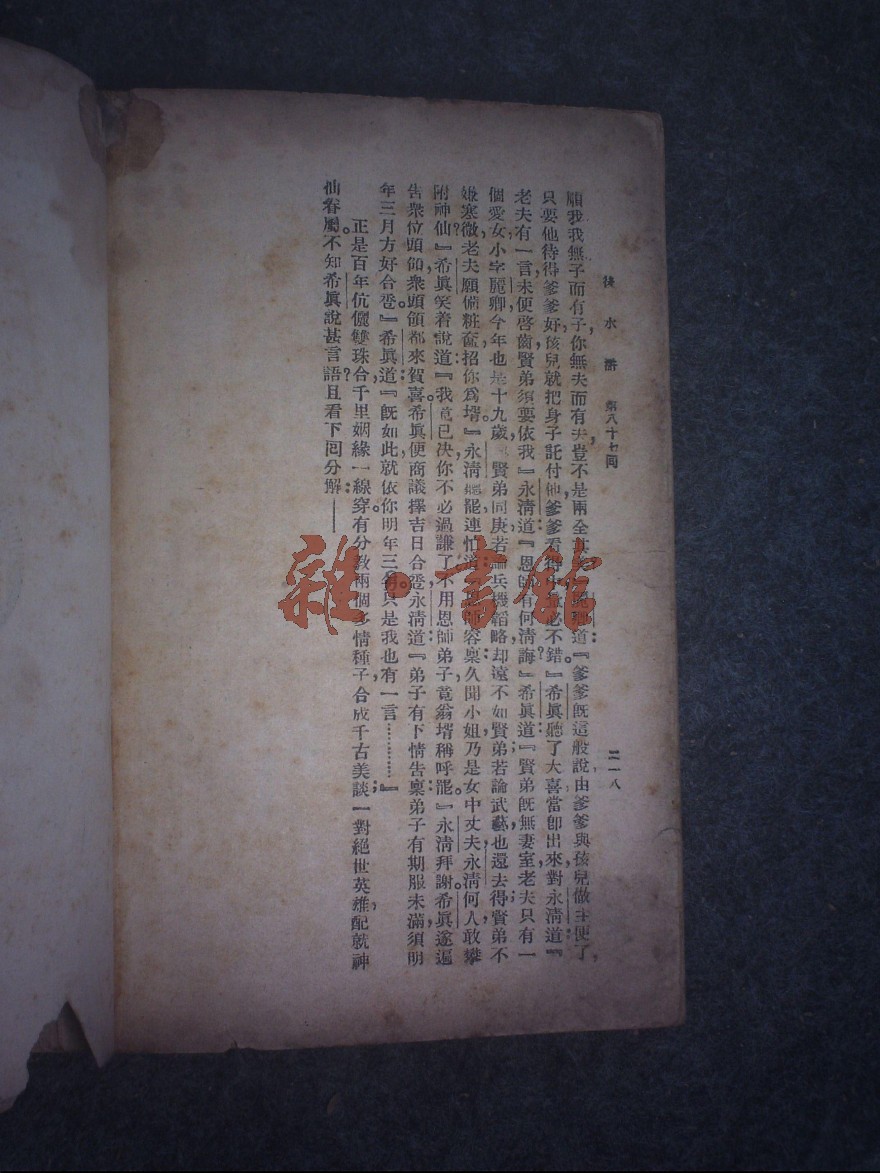 後水滸 第八十七回 三一八
顧我我無子而有子,你無夫而有夫,豈不是兩全其美』麗卿道:『爹爹既這般說由爹爹與孩兒做主便了,
只要他待得爹爹好,孩兒就把身子託付他,爹爹看得中意必不錯。』希眞聽了大喜當卽出來,對永淸道:『
老夫有一言,未便啓齒賢弟須要依我』永淸道:『恩師有何淸誨?』希眞道:『賢弟旣無妻室,老夫只有一
個愛女,小字麗卿今年也是十九歲,賢弟同庚若論兵機韜略却遠不如賢弟;若論武藝,也還去得;賢弟不
嫌寒微,老夫願備粧奩招你爲壻。』永淸聽罷連忙道:『恩師容稟久聞小姐乃是女中丈夫,永淸何人敢攀
附神仙?』希眞笑着說道:『我意已决你不必過謙了,不用恩師弟子,竟翁壻稱呼罷。』永淸拜謝。希眞遂遍
告衆位頭領,衆頭領都來賀喜希眞便商議擇吉日合巹,永淸道:『弟子有下情告稟弟子有期服未滿,須明
年三月方好合巹。』希眞道:『旣如此,就依你明年三月。只是我也有一言…………』
正是百年伉儷雙珠合,千里姻緣一線穿。有分教:兩個多情種子,合成千古美談;一對絕世英雄,配就神
仙眷屬。不知希眞說甚言語?且看下回分解——
雜·書館